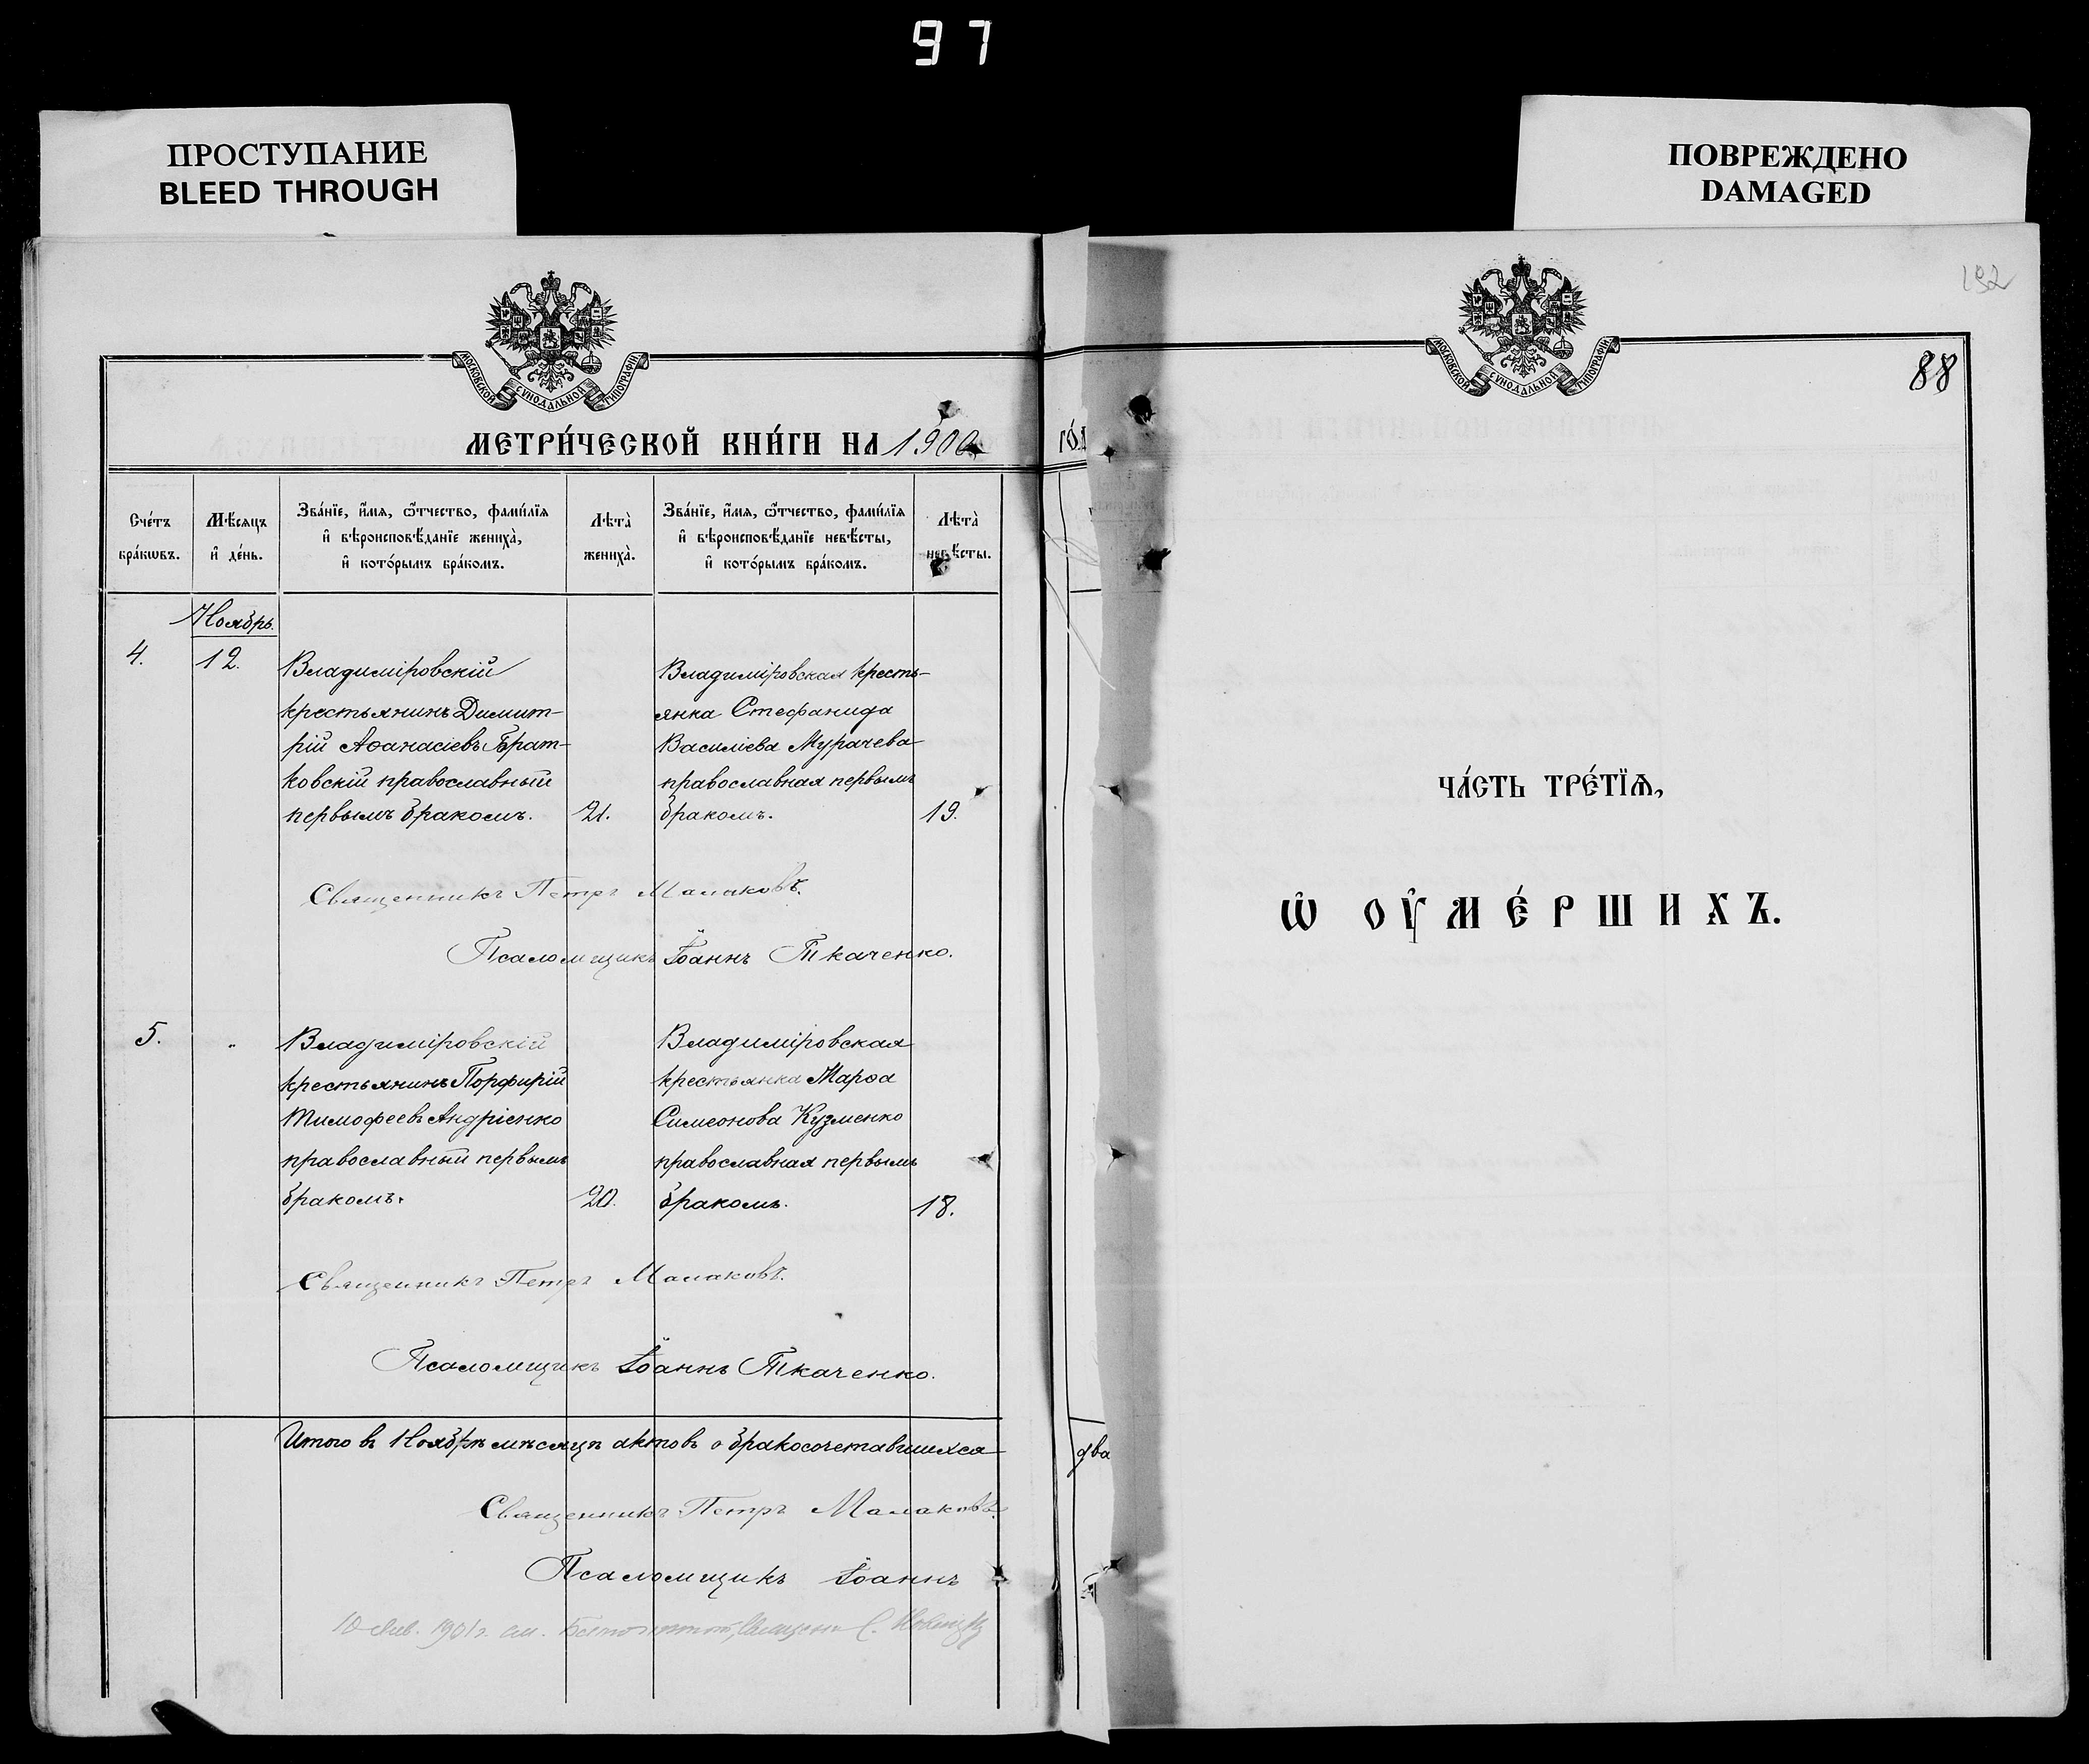 97
ПРОСТУПАНИЕ
BLEED THROUGH
ПОВРЕЖДЕНО
DAMAGED
МОСКОВСКОЙ СѴНОДАЛЬНОЙ ТИПОГРАФІИ
МЕТРИ́ЧЕСКОЙ КНИ́ГИ НА 1900
Сче́тъ бра́кѡвъ.
Мѣ́сяцъ и҆ де́нь.
Зва́нїе, и҆́мѧ, ѻ҆́тчество, фами́лїѧ
и҆ вѣроисповѣ́данїе жениха̀,
и҆ кото́рымъ бра́комъ.
Лѣта̀ жениха̀.
Зва́нїе, и҆́мѧ, ѻ҆́тчество, фами́лїѧ
и҆ вѣроисповѣ́данїе невѣ́сты,
и҆ кото́рымъ бра́комъ.
Лѣта̀ невѣ́сты.
Ноябрь.
4.
12.
Владиміровскій
крестьянинъ Димит-
рій Аѳанасіевъ Брат-
ковскій православный
первымъ бракомъ.
21.
Владиміровская кресть-
янка Стефанида
Василіева Мурачева
православная первымъ
бракомъ.
19.
Священникъ Петръ Малаковъ.
Псаломщикъ Іоаннъ Ткаченко.
5.
"
Владиміровскій
крестьянинъ Порфирій
Тимофеевъ Андріенко
православный первымъ
бракомъ.
20.
Владиміровская
крестьянка Марѳа
Симеонова Кузменко
православная первымъ
бракомъ.
18.
Священникъ Петръ Малаковъ.
Псаломщикъ Іоаннъ Ткаченко.
Итого въ Ноябрѣ мѣсяцѣ актовъ о бракосочетавшихся два
Священникъ Петръ Малаковъ.
Псаломщикъ Іоаннъ
10 Янв. 1901 г.
го́д
192
МОСКОВСКОЙ СѴНОДАЛЬНОЙ ТИПОГРАФІИ
88
ЧА́СТЬ ТРЕ́ТЇѦ,
Ѡ҆ ОУ҆МЕ́РШИХЪ.